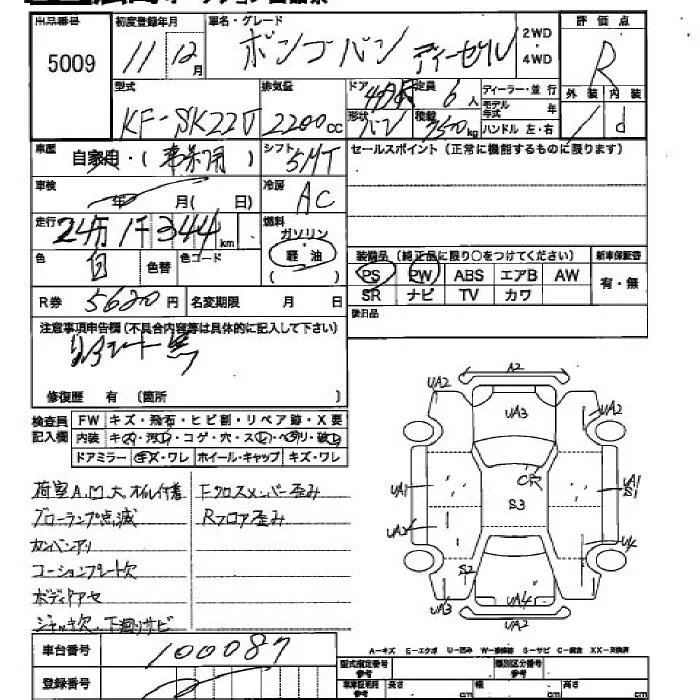 出品番号 初度登録年月 車名・グレード 2WD・4WD 評価点
5009 11 12月 ボンゴバン ディーゼル R
型式 排気量 ドア 定員 6人 ディーラー・並行 外装 内装
KF-SK22V 2200cc 形状 バン 積載 kg モデル年式 年 ハンドル 左・右 d
車歴 自家用・( ) シフト 5MT セールスポイント(正常に機能するものに限ります)
車検 年 月( 日) 冷房 AC
走行 24万1千344km 燃料 ガソリン
色 白 色替 色コード 軽油
( )
装備品(純正品に限り○をつけてください) 新車保証書
PS PW ABS エアB AW 有・無
SR ナビ TV カワ
R券 5620円 名変期限 月 日 後日品
注意事項申告欄(不具合内容等は具体的に記入して下さい)
修復歴 有 (箇所 )
検査員記入欄 FW キズ・飛石・ヒビ割・リペア跡・X要
内装 キズ・汚れ・コゲ・穴・スレ・ヘタリ・破れ
ドアミラー キズ・ワレ ホイール・キャップ キズ・ワレ
A2
UA2 UA3 UA2
CR
UA1 S3 UA1
S1
UA2 U4
S2
UA3 UA4
UA2
荷室A,U大 オイル付着 Fクロスメンバー歪み
グローランプ点滅 Rフロア歪み
カンバンアリ
コーションプレート欠
ボディ色アセ
ジャッキ欠、下廻りサビ
車台番号 100087
登録番号
A-キズ E-エクボ U-凹み W-補修跡 S-サビ C-腐食 XX-交換済
型式指定番号 参考 類別区分番号 参考
長さ cm 幅 cm 高さ cm